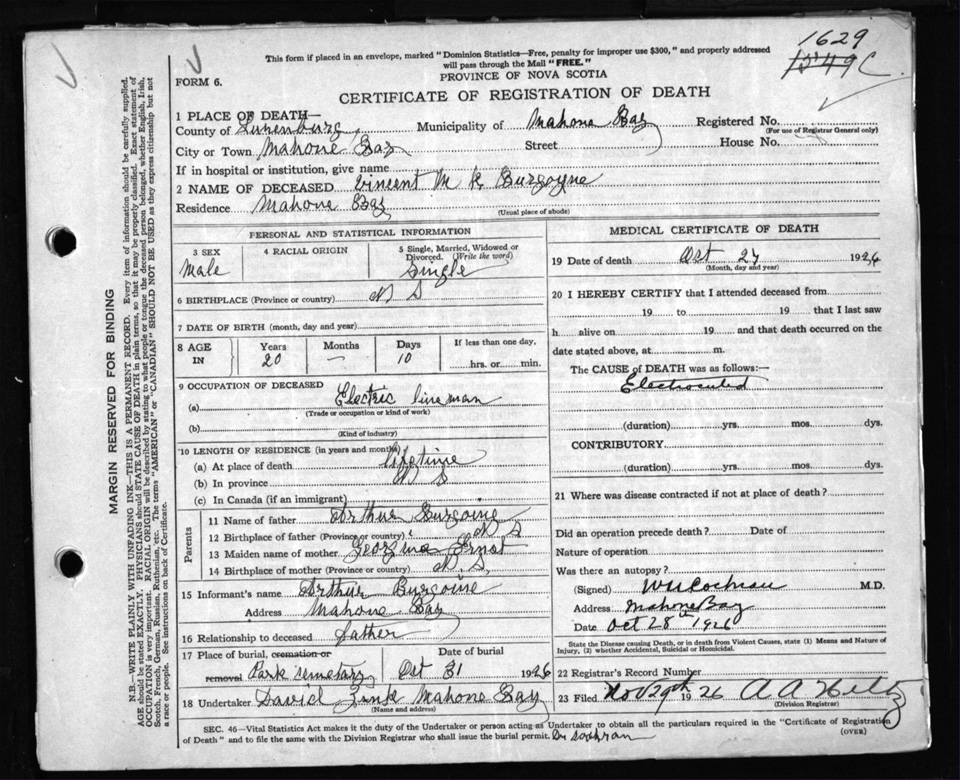 1629
1549 C.
This form if placed in an envelope, marked "Dominion Statistics—Free, penalty for improper use $300," and properly addressed
will pass through the Mail "FREE."
FORM 6.
PROVINCE OF NOVA SCOTIA
CERTIFICATE OF REGISTRATION OF DEATH
1 PLACE OF DEATH—
County of Lunenburg Municipality of Mahone Bay Registered No.
(For use of Registrar General only)
City or Town Mahone Bay Street House No.
If in hospital or institution, give name
2 NAME OF DECEASED Vincent M R Burgoyne
Residence Mahone Bay
(Usual place of abode)
PERSONAL AND STATISTICAL INFORMATION
3 SEX
Male
4 RACIAL ORIGIN
5 Single, Married, Widowed or
Divorced. (Write the word)
Single
6 BIRTHPLACE (Province or country) N S
7 DATE OF BIRTH (month, day and year)
8 AGE IN
Years Months Days If less than one day,
20 — 10 hrs. or min.
9 OCCUPATION OF DECEASED
(a) Electric lineman
(Trade or occupation or kind of work)
(b)
(Kind of industry)
10 LENGTH OF RESIDENCE (in years and months)
(a) At place of death lifetime
(b) In province N S
(c) In Canada (if an immigrant)
Parents
11 Name of father Arthur Burgoine
12 Birthplace of father (Province or country) N S
13 Maiden name of mother Georgina Ernst
14 Birthplace of mother (Province or country) N. S.
15 Informant's name Arthur Burgoine
Address Mahone Bay
16 Relationship to deceased father
17 Place of burial, cremation or Date of burial
removal Park Cemetary Oct 31 1926
18 Undertaker David Zink Mahone Bay
(Name and address)
MEDICAL CERTIFICATE OF DEATH
19 Date of death Oct 27 1926
(Month, day and year)
20 I HEREBY CERTIFY that I attended deceased from
19 to 19 that I last saw
h alive on 19 and that death occurred on the
date stated above, at m.
The CAUSE OF DEATH was as follows:—
Electrocuted
(duration) yrs. mos. dys.
CONTRIBUTORY
(duration) yrs. mos. dys.
21 Where was disease contracted if not at place of death?
Did an operation precede death? Date of
Nature of operation
Was there an autopsy?
(Signed) W N Cochran M.D.
Address Mahone Bay
Date Oct 28th 1926
State the Disease causing Death, or in death from Violent Causes, state (1) Means and Nature of
Injury, (2) whether Accidental, Suicidal or Homicidal.
22 Registrar's Record Number
23 Filed Nov 29th 1926 A A
(Division Registrar)
SEC. 46—Vital Statistics Act makes it the duty of the Undertaker or person acting as Undertaker to obtain all the particulars required in the "Certificate of Registration
of Death" and to file the same with the Division Registrar who shall issue the burial permit. Dr Cochran
(OVER)
MARGIN RESERVED FOR BINDING
N.B.—WRITE PLAINLY WITH UNFADING INK—THIS IS A PERMANENT RECORD. Every item of information should be carefully supplied.
AGE should be stated EXACTLY. PHYSICIANS should STATE CAUSE OF DEATH in plain terms, so that it may be properly classified. Exact statement of
OCCUPATION is very important. RACIAL ORIGIN will be described by stating to what people or tongue the deceased person belonged, whether English, Irish,
Scotch, French, German, Russian, Ruthenian, etc. The terms "AMERICAN" or "CANADIAN" SHOULD NOT BE USED as they express citizenship but not
a race or people. See instructions on back of Certificate.